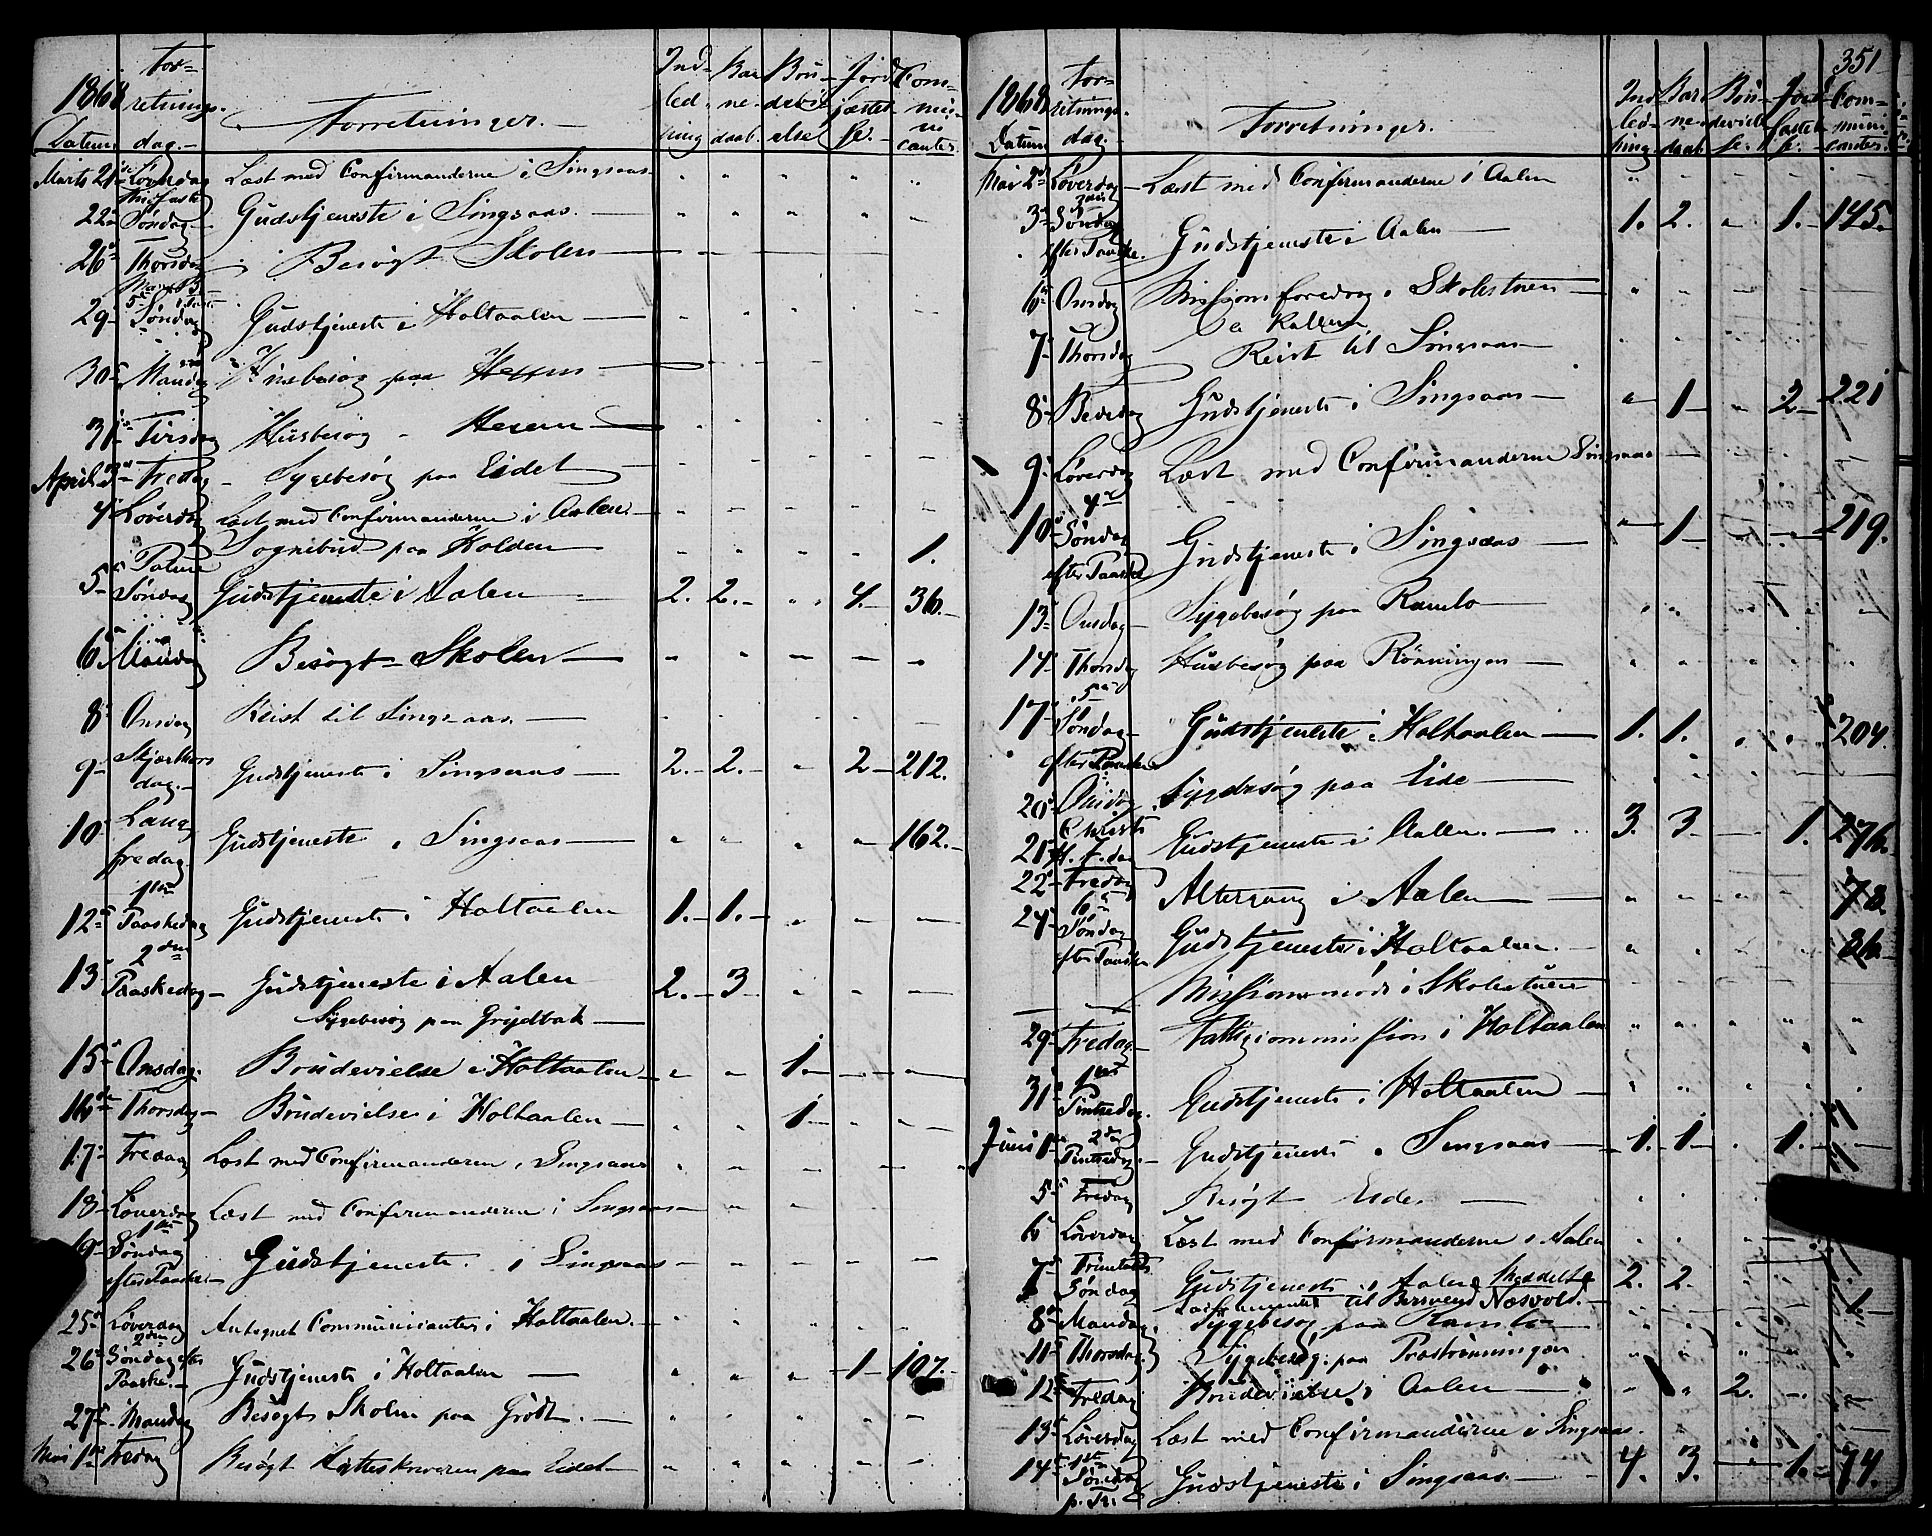 1868
Datum
For-
retnings-
dag.
Forretninger.
Ind-
led-
ning
Bar-
ne-
daab.
Brü-
devi-
else
Jord-
fæstel-
se.
Com-
mu-
ni-
canter.
Marts 21de Løverdag Læst med Confirmanderne i Singsaas
22de Midfaste Søndag Gudstjeneste i Singsaas.
26de Thorsdag Besøgt Skolen
29de Søndag Gudstjeneste i Holtaalen
30te Mandag Husbesøg paa
31te Tirsdag Husbesøg
April 3die Fredag Sygebesøg paa Eidet
4de Løverdag Læst med Confirmanderne i Aalen
Sognebud paa Holden 1.
5te Palme Søndag Gudstjeneste i Aalen 2. 2. 4. 36.
6te Mandag Besøgt Skolen
8de Onsdag Reist til Singsaas.
9de Skjærthors dag. Gudstjeneste i Singsaas 2. 2. 2 212.
10de Lang fredag Gudstjeneste i Singsaas 162.
12te 1ste Paaskedag Gudstjeneste i Holtaalen 1. 1.
13de 2den Paaskedag Gudstjeneste i Aalen 2. 3.
Sygebesøg paa
15de Onsdag. Brudevielse i Holtaalen 1.
16de Thorsdag Brudevielse i Holtaalen 1
17de Fredag Læst med Confirmanderne i Singsaas
18de Løverdag Læst med Confirmanderne i Singsaas
19de 1ste Søndag efter Paaske. Gudstjeneste i Singsaas
25de Løverdag Antegnet Communicanter i Holtaalen.
26de 2den Søndag efter Paaske. Gudstjeneste i Holtaalen 1 107.
27de Mandag Besøgt Skolen paa Grødt.
Mai 1ste Fredag Besøgt paa Eidet
351
1868
Datum
For-
retnings-
dag.
Forretninger.
Ind-
led-
ning.
Bar-
ne-
daab.
Brü-
deviel-
se.
Jord-
fæstel-
se.
Com-
muni-
canter.
Mai 2den Løverdag Læst med Confirmanderne i Aalen
3die 3die Søndag efter Paaske. Gudstjeneste i Aalen 1. 2. 1. 145.
6te Onsdag Missionsforedrag i Skolestuen
7de Thorsdag Reist til Singsaas
8de Bededag Gudstjeneste i Singsaas 1 2 221
9de Løverdag Læst med Confirmanderne Singsaas
10de 4de Søndag efter Paaske Gudstjeneste i Singsaas 1 219.
13de Onsdag Sygebesøg paa Ramlo
14de Thorsdag Husbesøg paa Rønningen
17de 5te Søndag efter Paaske Gudstjeneste i Holtaalen 1. 1. 204.
20de Onsdag Sygebesøg paa Eide
21de Christi H. F. dag Gudstjeneste i Aalen. 3. 3 1. 276.
22de Fredag Altergang i Aalen 78.
24de 6te Søndag efter Paaske Gudstjeneste i Holtaalen. 26.
Missionsmøde i Skolestuen
29de Fredag Fattigcommission i Holtaalen
31te 1ste Pintsedag. Gudstjeneste i Holtaalen
Juni 1ste 2den Pintsedag. Gudstjeneste i Singsaas 1. 1 1.
5te Fredag Besøgt Eidet
6te Løverdag Læst med Confirmanderne i Aalen
7de Trinitatis Søndag Gudstjeneste i Aalen. Meddelt 2. 2.
til Bersvend Næsvold. 1.
8de Mandag. Sygebesøg paa Ramlo
11te Thorsdag. Sygebesøg paa Præstrønningen
12te Fredag Brudevielse i Aalen 2.
13de Løverdag Læst med Confirmanderne i Singsaas.
14de 1ste Søndag p. Tr. Gudstjeneste i Singsaas. 4. 3. 1. 74.